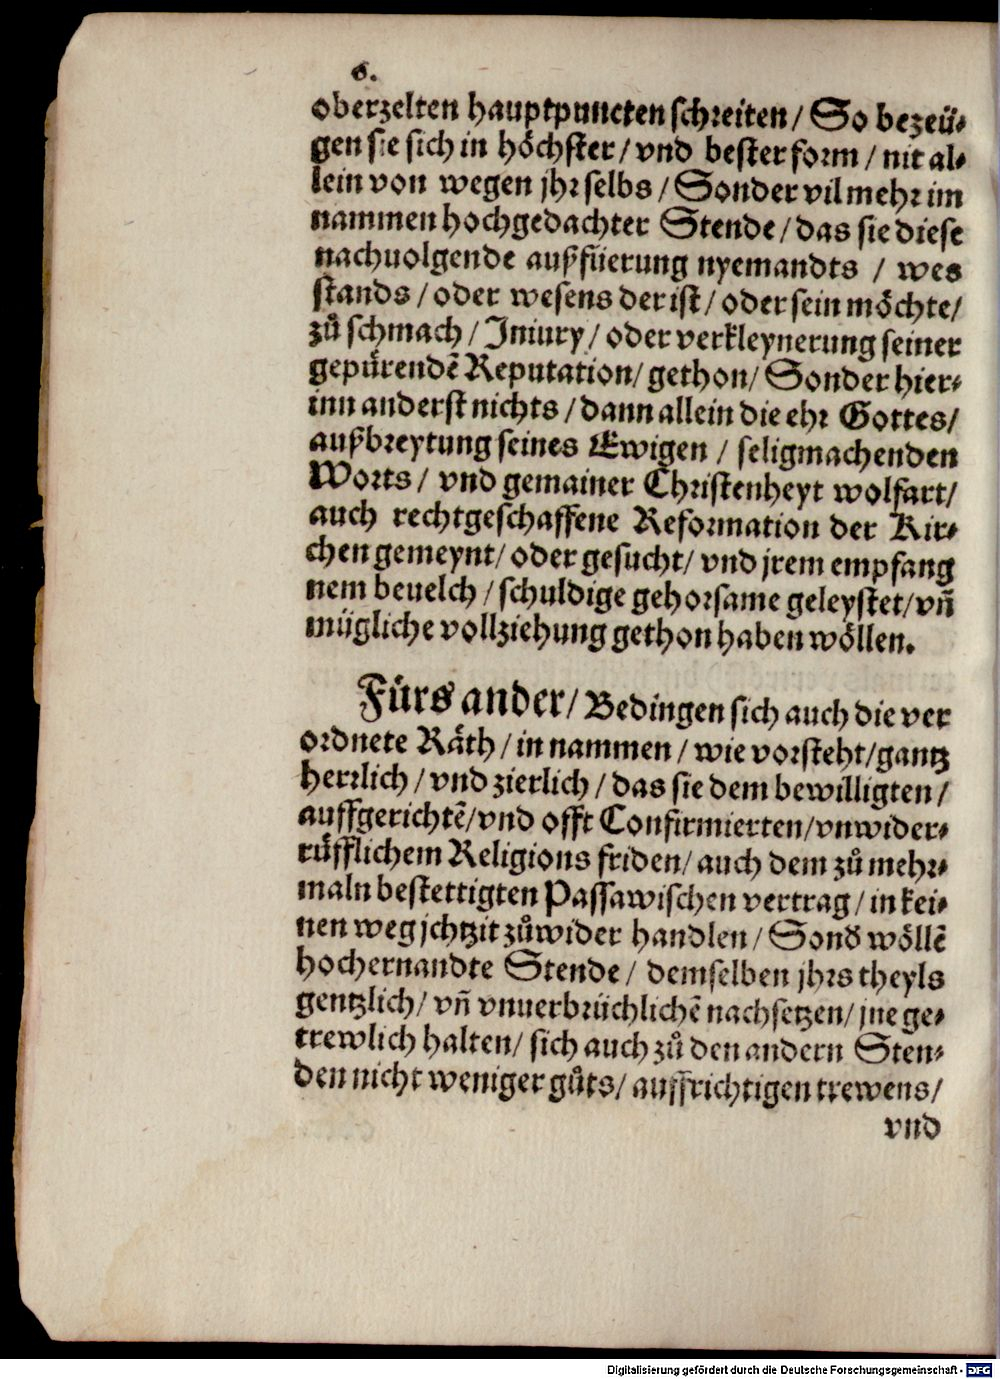 6.
oberzelten hauptpuncten schreiten / So bezeü-
gen sie sich in höchster / vnd bester form / nit al-
lein von wegen jhr selbs / Sonder vil mehr im
nammen hochgedachter Stende / das sie diese
nachuolgende außfüerung nyemandts / wes
stands / oder wesens der ist / oder sein möchte /
zů schmach / Iniury / oder verkleynerung seiner
gepürendē Reputation / gethon / Sonder hier-
inn anderst nichts / dann allein die ehr Gottes /
außbreytung seines Ewigen / seligmachenden
Worts / vnd gemainer Christenheyt wolfart /
auch rechtgeschaffene Reformation der Kir-
chen gemeynt / oder gesucht / vnd jrem empfang
nem beuelch / schuldige gehorsame geleystet / vñ
mügliche vollziehung gethon haben wöllen.
Fürs ander / Bedingen sich auch die ver
ordnete Räth / in nammen / wie vorsteht / gantz
herrlich / vnd zierlich / das sie dem bewilligten /
auffgerichtē / vnd offt Confirmierten / vnwider-
rüfflichem Religions friden / auch dem zů mehr-
maln bestettigten Passawischen vertrag / in kei-
nen weg jchtzit zůwider handlen / Sond wöllē
hochernandte Stende / demselben jhrs theyls
gentzlich / vñ vnuerbrüchlichē nachsetzen / jne ge-
trewlich halten / sich auch zů den andern Sten-
den nicht weniger gůts / auffrichtigen trewens /
vnd
Digitalisierung gefördert durch die Deutsche Forschungsgemeinschaft - DFG